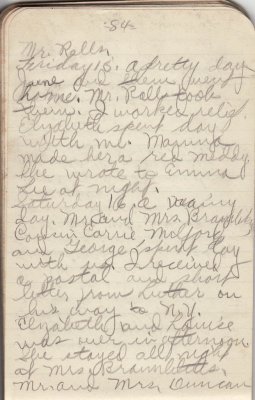 84
Mr. Rolls.
Friday 15. a pretty day
June and Helen went
home. Mr. Rolls took
them. I worked relief.
Elizabeth spent day
with me. Mamma
made her a red middy.
She wrote to Emma
Lee at night.
Saturday 16. a rainy
day. Mr. and Mrs. Bramblitt,
Cousin Carrie Mulford
and George spent day
with us. I received
a postal and short
letter from Luther on
his way to N.Y.
Elizabeth and Louise
was over in afternoon.
She stayed all night
at Mrs. Bramblitts,
Mr. and Mrs. Duncan